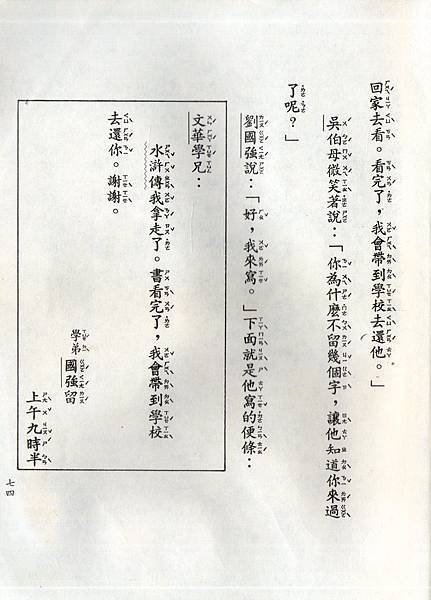 回家去看。看完了，我會帶到學校去還他。」
吳伯母微笑著說：「你為什麼不留幾個字，讓他知道你來過
了呢？」
劉國強說：「好，我來寫。」下面就是他寫的便條：
文華學兄：
水滸傳我拿走了。書看完了，我會帶到學校
去還你。謝謝。
學弟國強留
上午九時半
七四